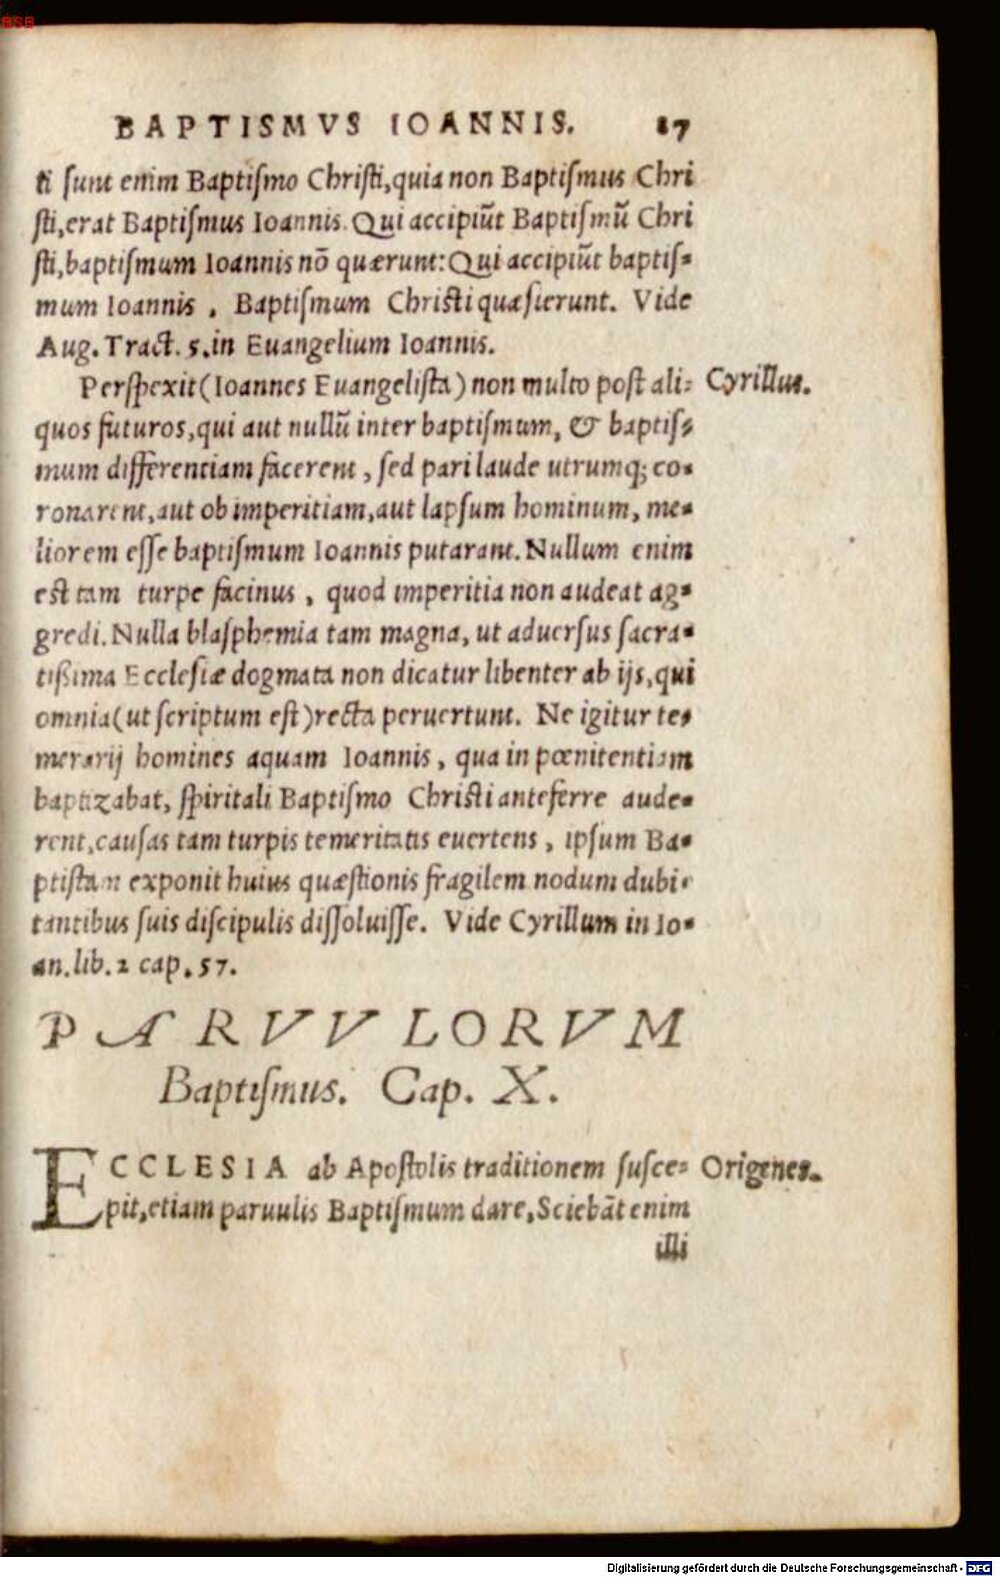 BSB
BAPTISMVS IOANNIS. 87
ti sunt enim Baptiſmo Chriſti, quia non Baptiſmus Chri
ſti, erat Baptiſmus Ioannis. Qui accipiūt Baptiſmū Chri
ſti, baptiſmum Ioannis nō quærunt: Qui accipiūt baptiſ=
mum Ioannis, Baptiſmum Chriſti quæſierunt. Vide
Aug. Tract. 5. in Euangelium Ioannis.
Perſpexit (Ioannes Euangeliſta) non multo poſt ali= Cyrillus.
quos futuros, qui aut nullū inter baptiſmum, & baptiſ=
mum differentiam facerent, ſed pari laude utrumq; co=
ronarent, aut ob imperitiam, aut lapſum hominum, me=
liorem eſſe baptiſmum Ioannis putarant. Nullum enim
eſt tam turpe facinus, quod imperitia non audeat ag=
gredi. Nulla blaſphemia tam magna, ut aduerſus ſacra=
tißima Eccleſiæ dogmata non dicatur libenter ab ijs, qui
omnia (ut ſcriptum eſt) recta peruertunt. Ne igitur te=
merarij homines aquam Ioannis, qua in pœnitentiam
baptizabat, ſpiritali Baptiſmo Chriſti anteferre aude=
rent, cauſas tam turpis temeritatis euertens, ipſum Ba=
ptiſtam exponit huius quæſtionis fragilem nodum dubi=
tantibus ſuis diſcipulis diſſoluiſſe. Vide Cyrillum in Io=
an. lib. 2 cap. 57.
PARVVLORVM
Baptiſmus. Cap. X.
ECCLESIA ab Apoſtolis traditionem ſuſce= Origenes.
pit, etiam paruulis Baptiſmum dare, Sciebāt enim
illi
Digitalisierung gefördert durch die Deutsche Forschungsgemeinschaft - DFG